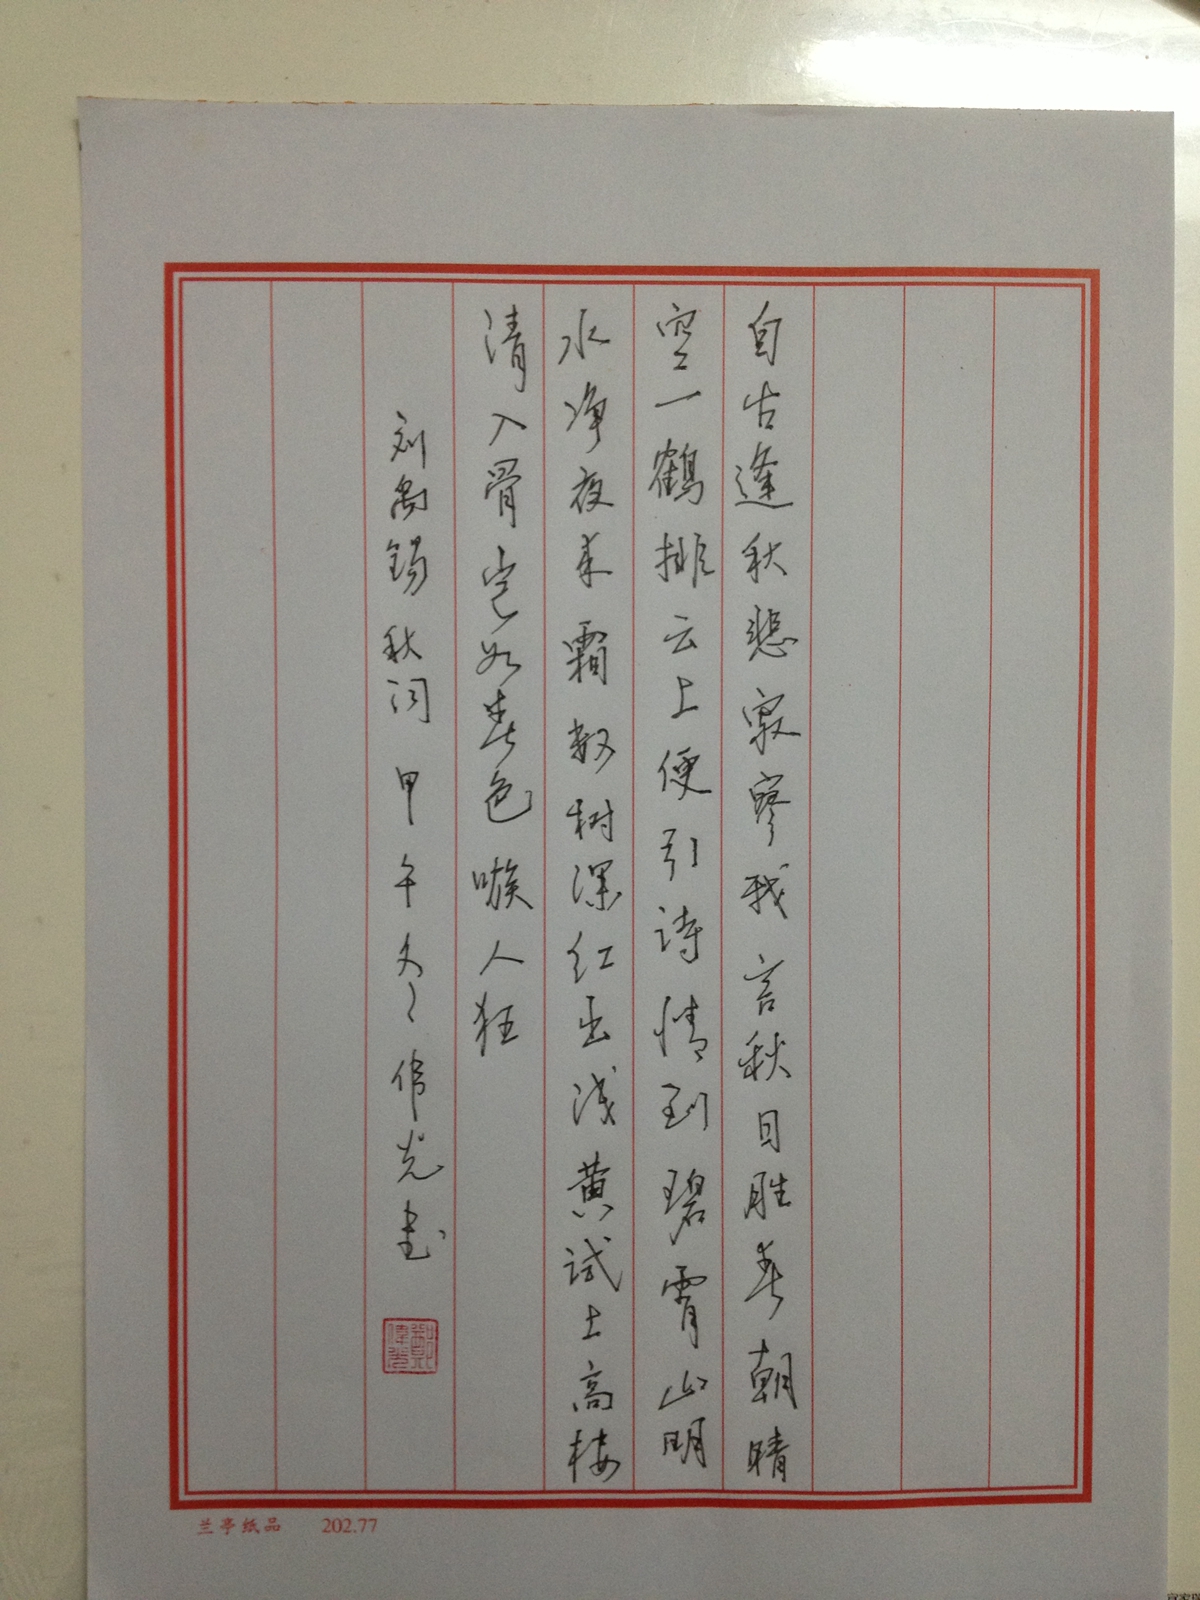 自古逢秋悲寂寥我言秋日胜春朝晴
空一鹤排云上便引诗情到碧霄山明
水净夜来霜数树深红出浅黄试上高楼
清入骨岂如春色嗾人狂
刘禹锡秋词 甲午冬 伟光书
鄭偉光
兰亭纸品 202.77